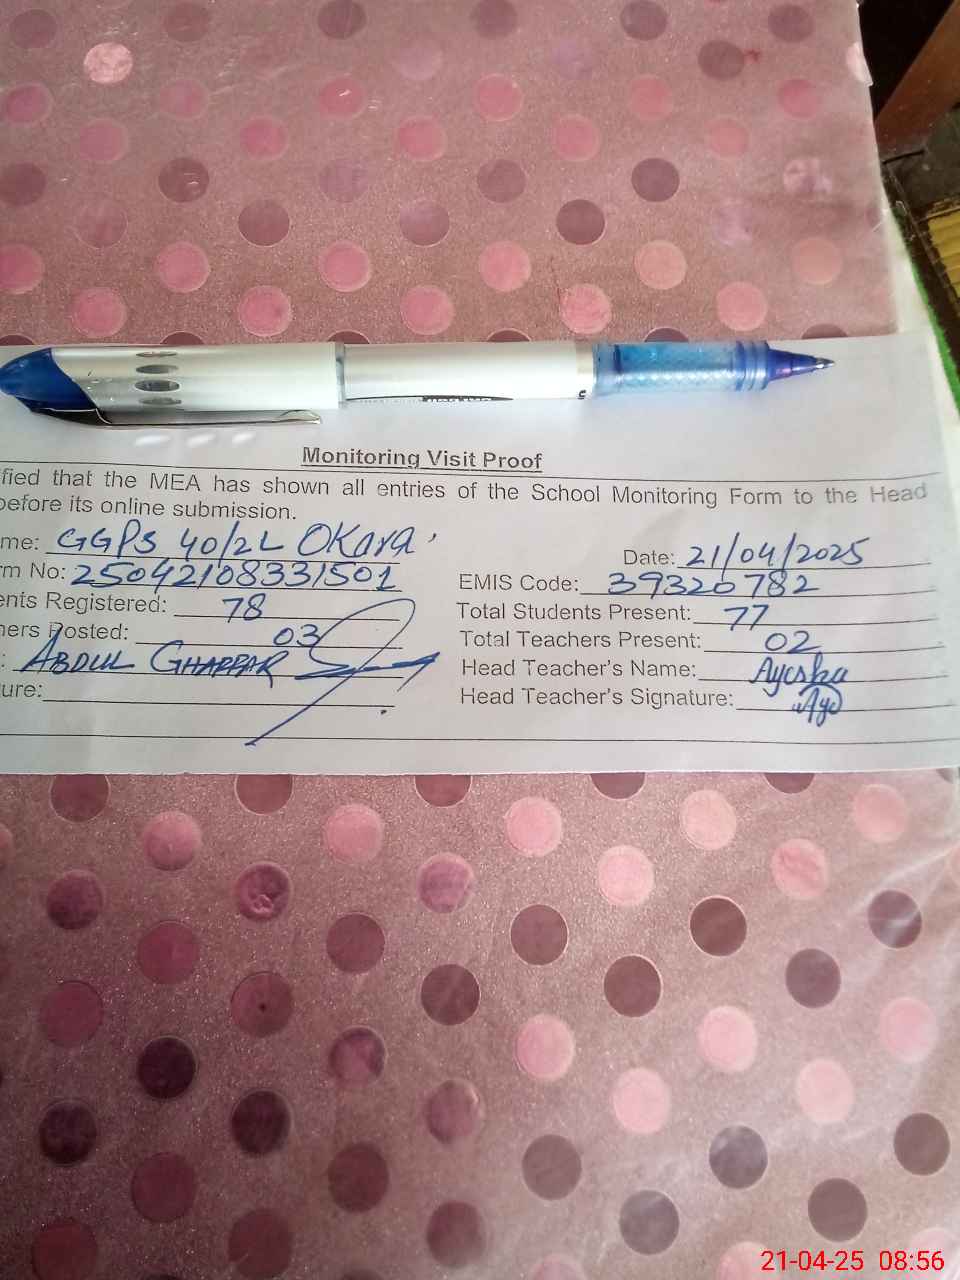 Monitoring Visit Proof
fied that the MEA has shown all entries of the School Monitoring Form to the Head
before its online submission.
me: GGPS 40/2L Okara Date: 21/04/2025
rm No: 25042108331501 EMIS Code: 39320782
ents Registered: 78 Total Students Present: 77
hers Posted: 03 Total Teachers Present: 02
: ABDUL GHAFFAR Head Teacher's Name: Ayesha
ure: Head Teacher's Signature:
21-04-25 08:56